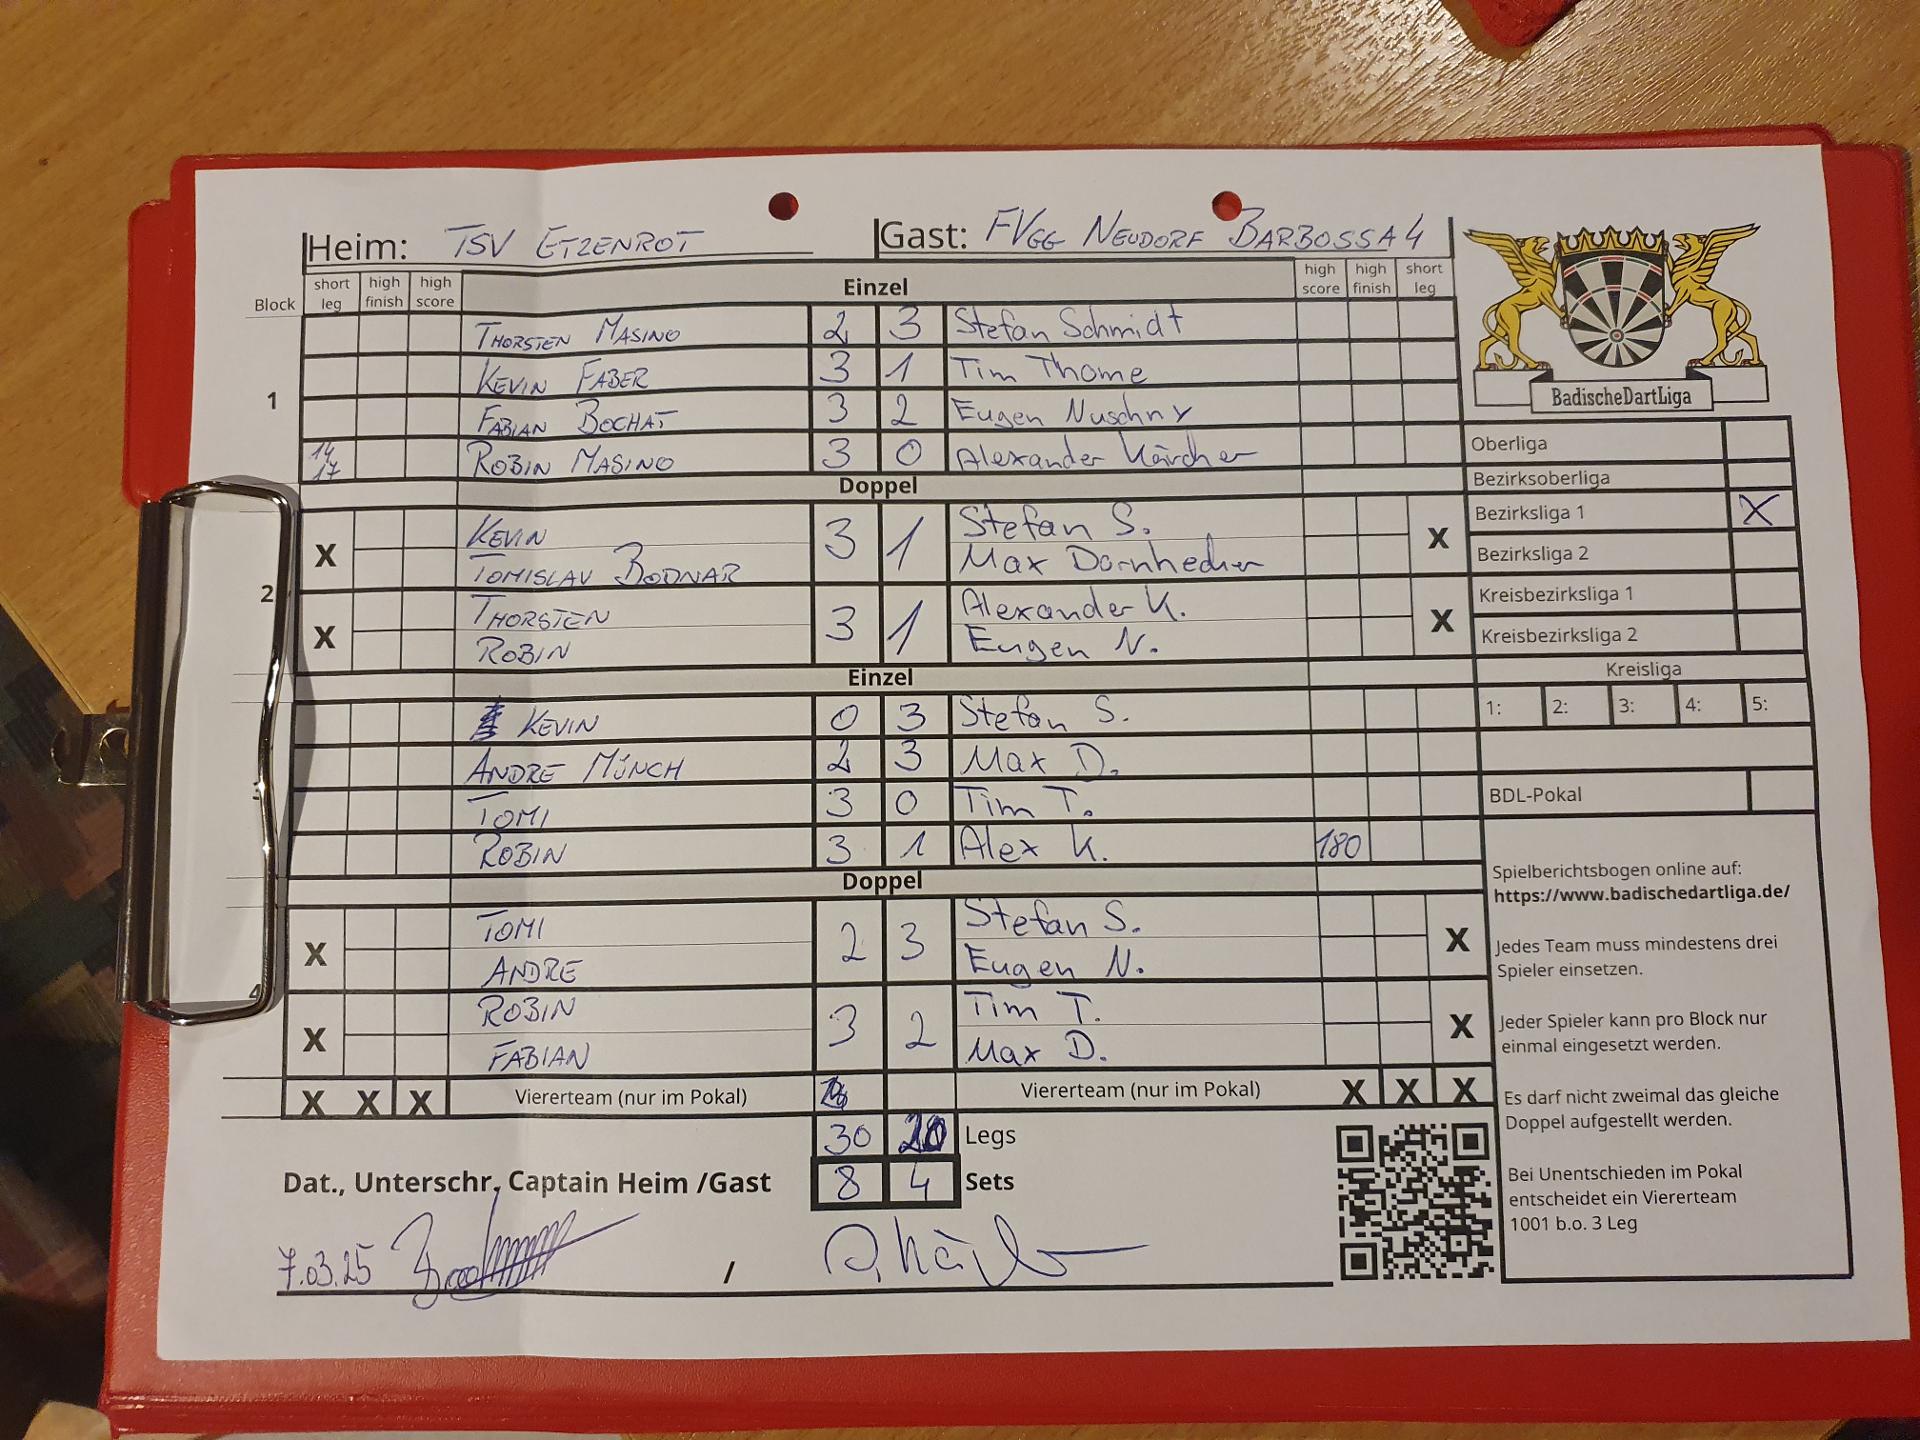 Heim: TSV ETZENROT Gast: FVGG NEUDORF BARBOSSA 4
Block short leg high finish high score Einzel high score high finish short leg
THORSTEN MASINO 2 3 Stefan Schmidt
KEVIN FABER 3 1 Tim Thome
1
FABIAN BOCHAT 3 2 Eugen Nuschny
14 17 ROBIN MASINO 3 0 Alexander Kärcher
Doppel
X KEVIN 3 1 Stefan S. X
TOMISLAV BODNAR Max Dornhecker
2
X THORSTEN 3 1 Alexander K. X
ROBIN Eugen N.
Einzel
KEVIN 0 3 Stefan S.
ANDRE MÜNCH 2 3 Max D.
3
TOMI 3 0 Tim T.
ROBIN 3 1 Alex K. 180
Doppel
X TOMI 2 3 Stefan S. X
ANDRE Eugen N.
4
X ROBIN 3 2 Tim T. X
FABIAN Max D.
X X X Viererteam (nur im Pokal) Viererteam (nur im Pokal) X X X
30 20 Legs
Dat., Unterschr. Captain Heim /Gast 8 4 Sets
7.03.25 /
BadischeDartLiga
Oberliga
Bezirksoberliga
Bezirksliga 1 X
Bezirksliga 2
Kreisbezirksliga 1
Kreisbezirksliga 2
Kreisliga
1: 2: 3: 4: 5:
BDL-Pokal
Spielberichtsbogen online auf:
https://www.badischedartliga.de/
Jedes Team muss mindestens drei
Spieler einsetzen.
Jeder Spieler kann pro Block nur
einmal eingesetzt werden.
Es darf nicht zweimal das gleiche
Doppel aufgestellt werden.
Bei Unentschieden im Pokal
entscheidet ein Viererteam
1001 b.o. 3 Leg